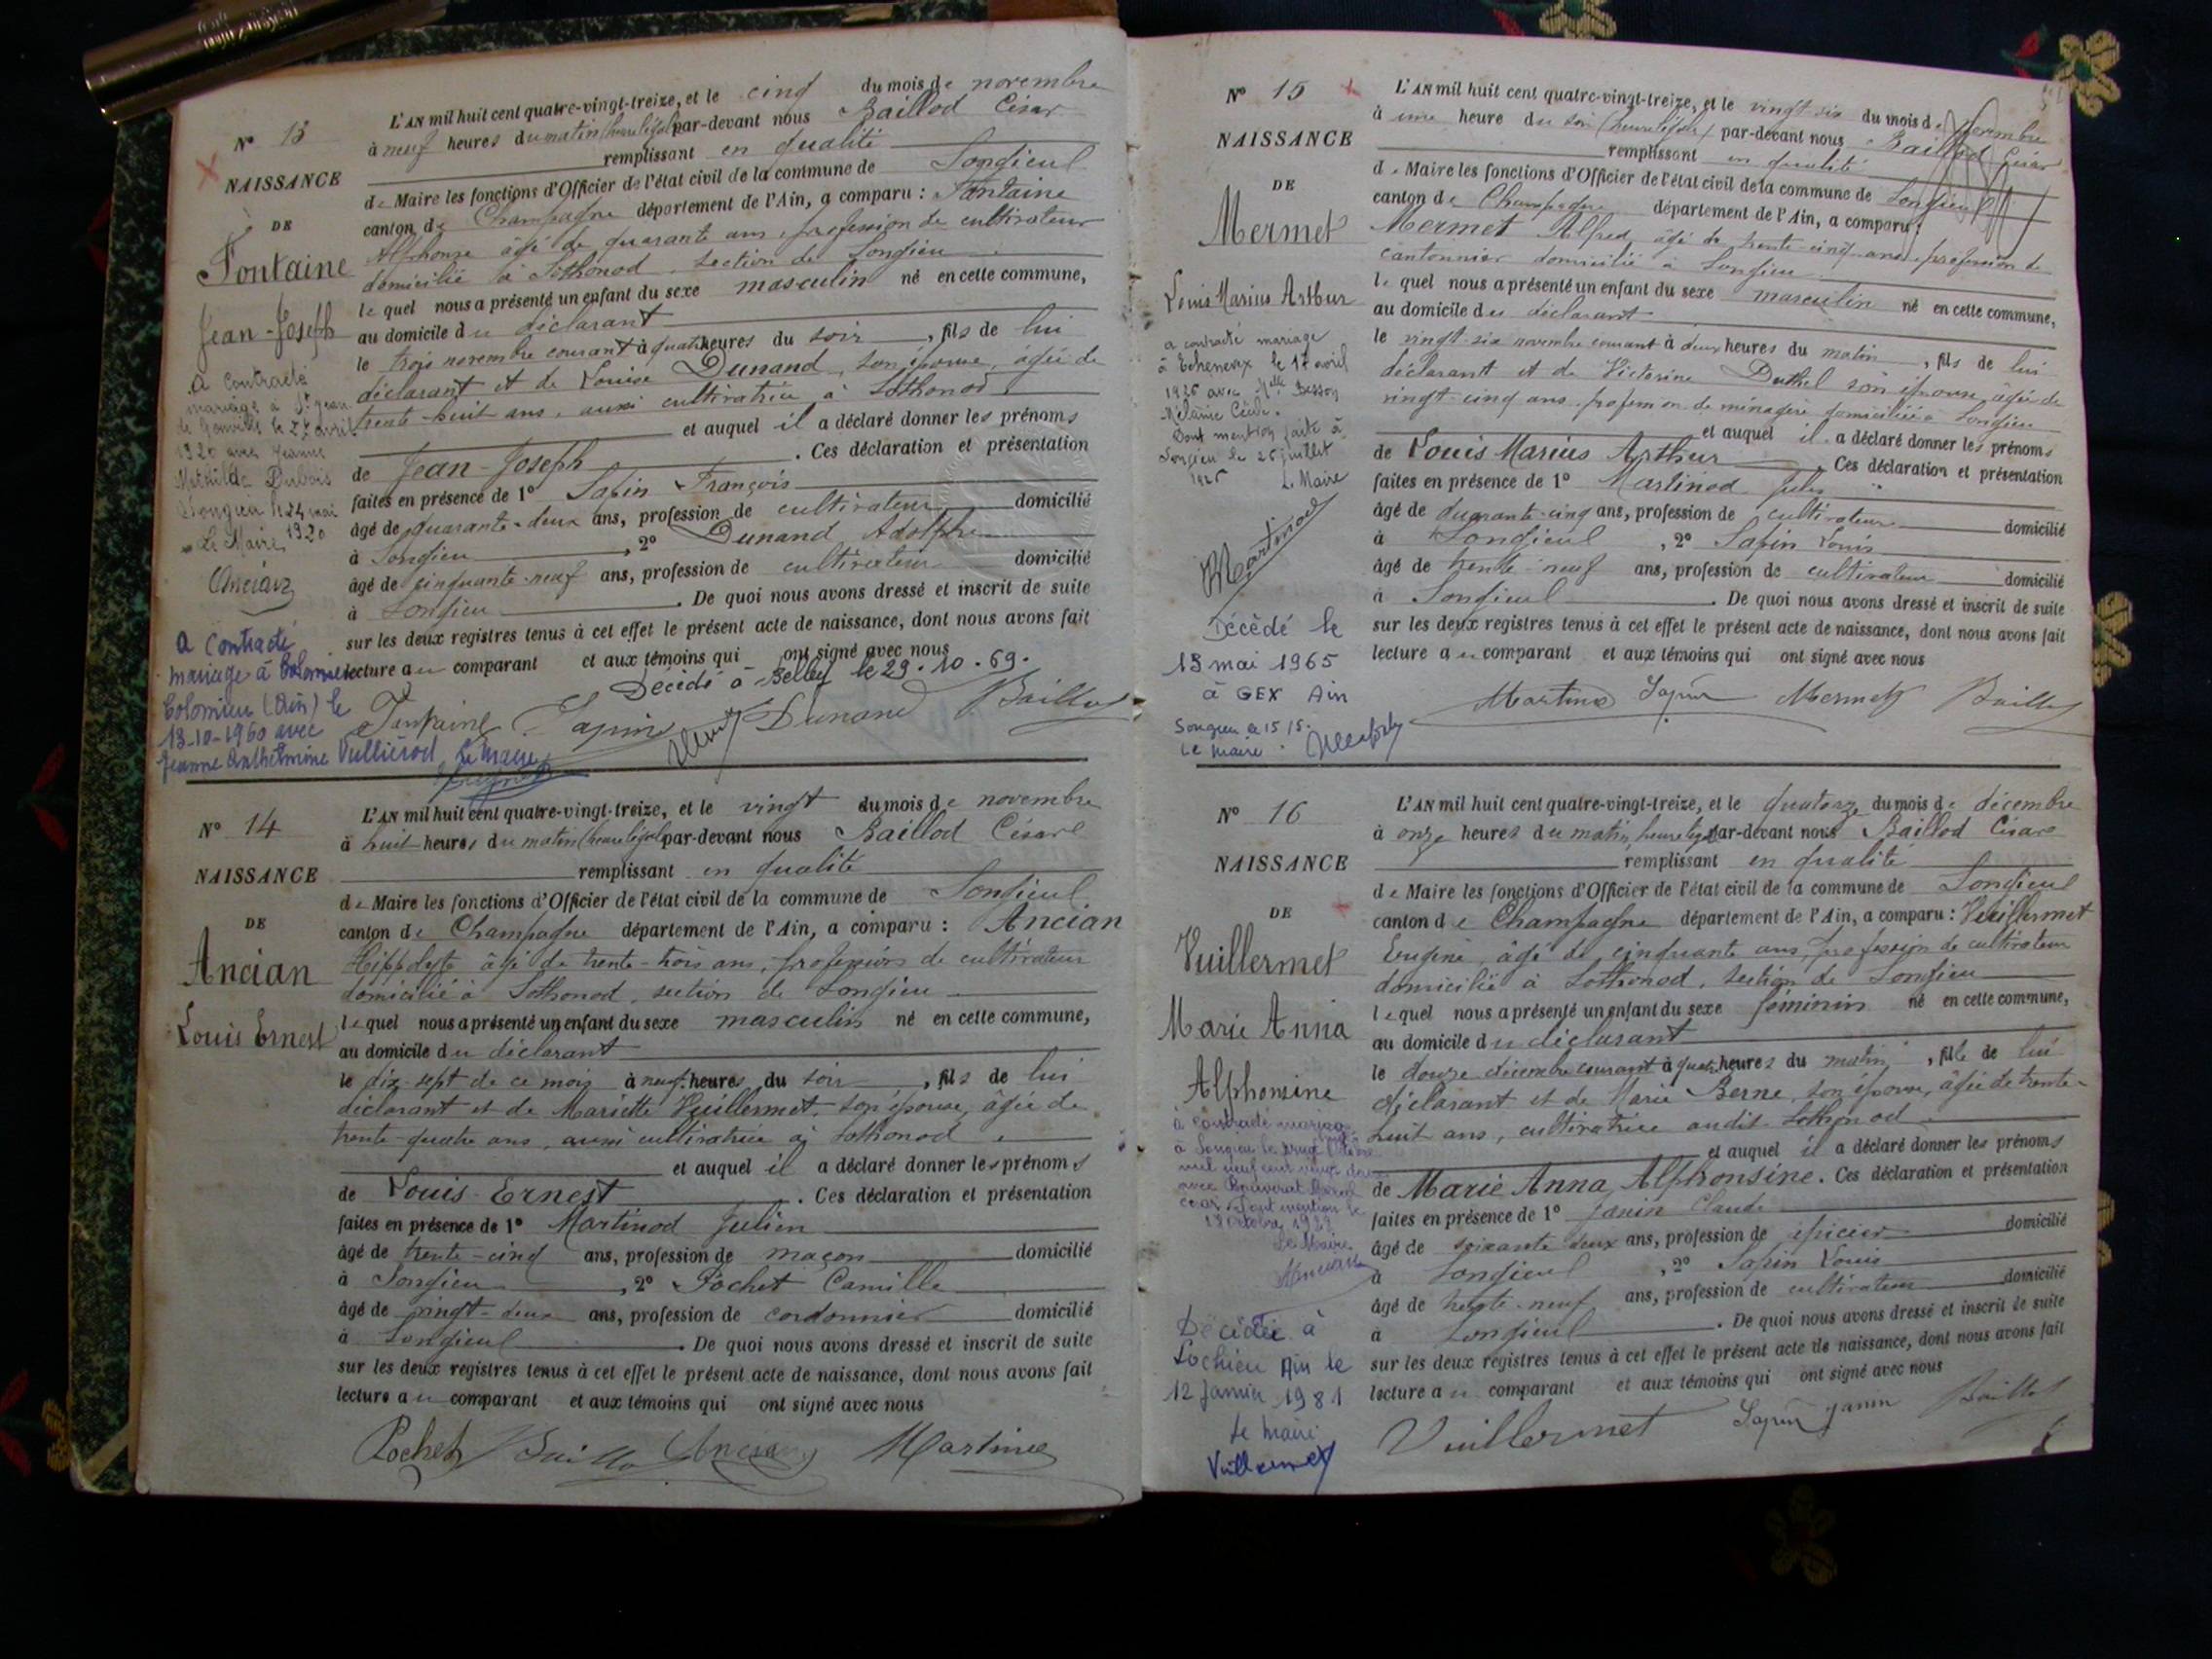 N° 13
NAISSANCE
DE
Fontaine
Jean-Joseph
a contracté
mariage à St Jean
de Gonville le 27 avril
1920 avec Jeanne
Mathilde Dubois
Songieu le 24 mai
1920
Le Maire
Ancian
a contracté
mariage à
Colomieu (Ain) le
13-10-1960 avec
Jeanne Anthelmine Vulliérod Le Maire
L'AN mil huit cent quatre-vingt-treize, et le cinq du mois de novembre
à neuf heures du matin (heure légale) par-devant nous Baillod César
remplissant en qualité
de Maire les fonctions d'Officier de l'état civil de la commune de Songieu
canton de Champagne département de l'Ain, a comparu : Fontaine
Alphonse âgé de quarante ans, profession de cultivateur
domicilié à Sothonod, section de Songieu
lequel nous a présenté un enfant du sexe masculin né en cette commune,
au domicile du déclarant
le trois novembre courant à quatre heures du soir, fils de lui
déclarant et de Louise Dunand, son épouse, âgée de
trente-huit ans, aussi cultivatrice à Sothonod
et auquel il a déclaré donner les prénoms
de Jean-Joseph. Ces déclaration et présentation
faites en présence de 1° Sapin François
âgé de quarante-deux ans, profession de cultivateur domicilié
à Songieu, 2° Dunand Adolphe
âgé de cinquante-neuf ans, profession de cultivateur domicilié
à Songieu. De quoi nous avons dressé et inscrit de suite
sur les deux registres tenus à cet effet le présent acte de naissance, dont nous avons fait
lecture au comparant et aux témoins qui ont signé avec nous
Décédé à Belley le 29.10.69.
Fontaine Sapin Dunand Baillod
N° 14
NAISSANCE
DE
Ancian
Louis Ernest
L'AN mil huit cent quatre-vingt-treize, et le vingt du mois de novembre
à huit heures du matin (heure légale) par-devant nous Baillod César
remplissant en qualité
de Maire les fonctions d'Officier de l'état civil de la commune de Songieu
canton de Champagne département de l'Ain, a comparu : Ancian
Hippolyte âgé de trente-trois ans, profession de cultivateur
domicilié à Sothonod, section de Songieu
lequel nous a présenté un enfant du sexe masculin né en cette commune,
au domicile du déclarant
le dix-sept de ce mois à neuf heures du soir, fils de lui
déclarant et de Mariette Vuillermet, son épouse, âgée de
trente-quatre ans, aussi cultivatrice à Sothonod
et auquel il a déclaré donner les prénoms
de Louis-Ernest. Ces déclaration et présentation
faites en présence de 1° Martinod Julien
âgé de trente-cinq ans, profession de maçon domicilié
à Songieu, 2° Pochet Camille
âgé de vingt-deux ans, profession de cordonnier domicilié
à Songieu. De quoi nous avons dressé et inscrit de suite
sur les deux registres tenus à cet effet le présent acte de naissance, dont nous avons fait
lecture au comparant et aux témoins qui ont signé avec nous
Pochet Baillod Ancian Martinod
N° 15
NAISSANCE
DE
Mermet
Louis Marius Arthur
a contracté mariage
à Echenevex le 17 avril
1926 avec Melle Besson
Mélanie Cécile.
Dont mention faite à
Songieu le 26 juillet
1926 Le Maire
Martinod
Décédé le
13 mai 1965
à GEX Ain
Songieu le 15/5.
Le Maire.
L'AN mil huit cent quatre-vingt-treize, et le vingt-six du mois de novembre
à une heure du soir (heure légale) par-devant nous Baillod César
remplissant en qualité
de Maire les fonctions d'Officier de l'état civil de la commune de Songieu
canton de Champagne département de l'Ain, a comparu :
Mermet Alfred, âgé de trente-cinq ans, profession de
cantonnier domicilié à Songieu
lequel nous a présenté un enfant du sexe masculin né en cette commune,
au domicile du déclarant
le vingt-six novembre courant à deux heures du matin, fils de lui
déclarant et de Victorine Duthel son épouse, âgée de
vingt-cinq ans, profession de ménagère domiciliée à Songieu
et auquel il a déclaré donner les prénoms
de Louis Marius Arthur. Ces déclaration et présentation
faites en présence de 1° Martinod Jules
âgé de quarante-cinq ans, profession de cultivateur domicilié
à Songieu, 2° Sapin Louis
âgé de trente-neuf ans, profession de cultivateur domicilié
à Songieu. De quoi nous avons dressé et inscrit de suite
sur les deux registres tenus à cet effet le présent acte de naissance, dont nous avons fait
lecture au comparant et aux témoins qui ont signé avec nous
Martinod Sapin Mermet Baillod
N° 16
NAISSANCE
DE
Vuillermet
Marie Anna
Alphonsine
a contracté mariage
à Songieu le
mil neuf cent vingt deux
avec
Dont mention le
18 octobre 1922
Le Maire
Ancian
Décédée à
Lochieu Ain le
12 Janvier 1981
Le Maire
Vuillermet
L'AN mil huit cent quatre-vingt-treize, et le quatorze du mois de décembre
à onze heures du matin, heure légale par-devant nous Baillod César
remplissant en qualité
de Maire les fonctions d'Officier de l'état civil de la commune de Songieu
canton de Champagne département de l'Ain, a comparu : Vuillermet
Eugène, âgé de cinquante ans, profession de cultivateur
domicilié à Sothonod, section de Songieu
lequel nous a présenté un enfant du sexe féminin né en cette commune,
au domicile du déclarant
le douze décembre courant à quatre heures du matin, fille de lui
déclarant et de Marie Berne, son épouse, âgée de trente-
huit ans, cultivatrice audit Sothonod
et auquel il a déclaré donner les prénoms
de Marie Anna Alphonsine. Ces déclaration et présentation
faites en présence de 1° Janin Claude
âgé de soixante-deux ans, profession de épicier domicilié
à Songieu, 2° Sapin Louis
âgé de trente-neuf ans, profession de cultivateur domicilié
à Songieu. De quoi nous avons dressé et inscrit de suite
sur les deux registres tenus à cet effet le présent acte de naissance, dont nous avons fait
lecture au comparant et aux témoins qui ont signé avec nous
Vuillermet Sapin Janin Baillod